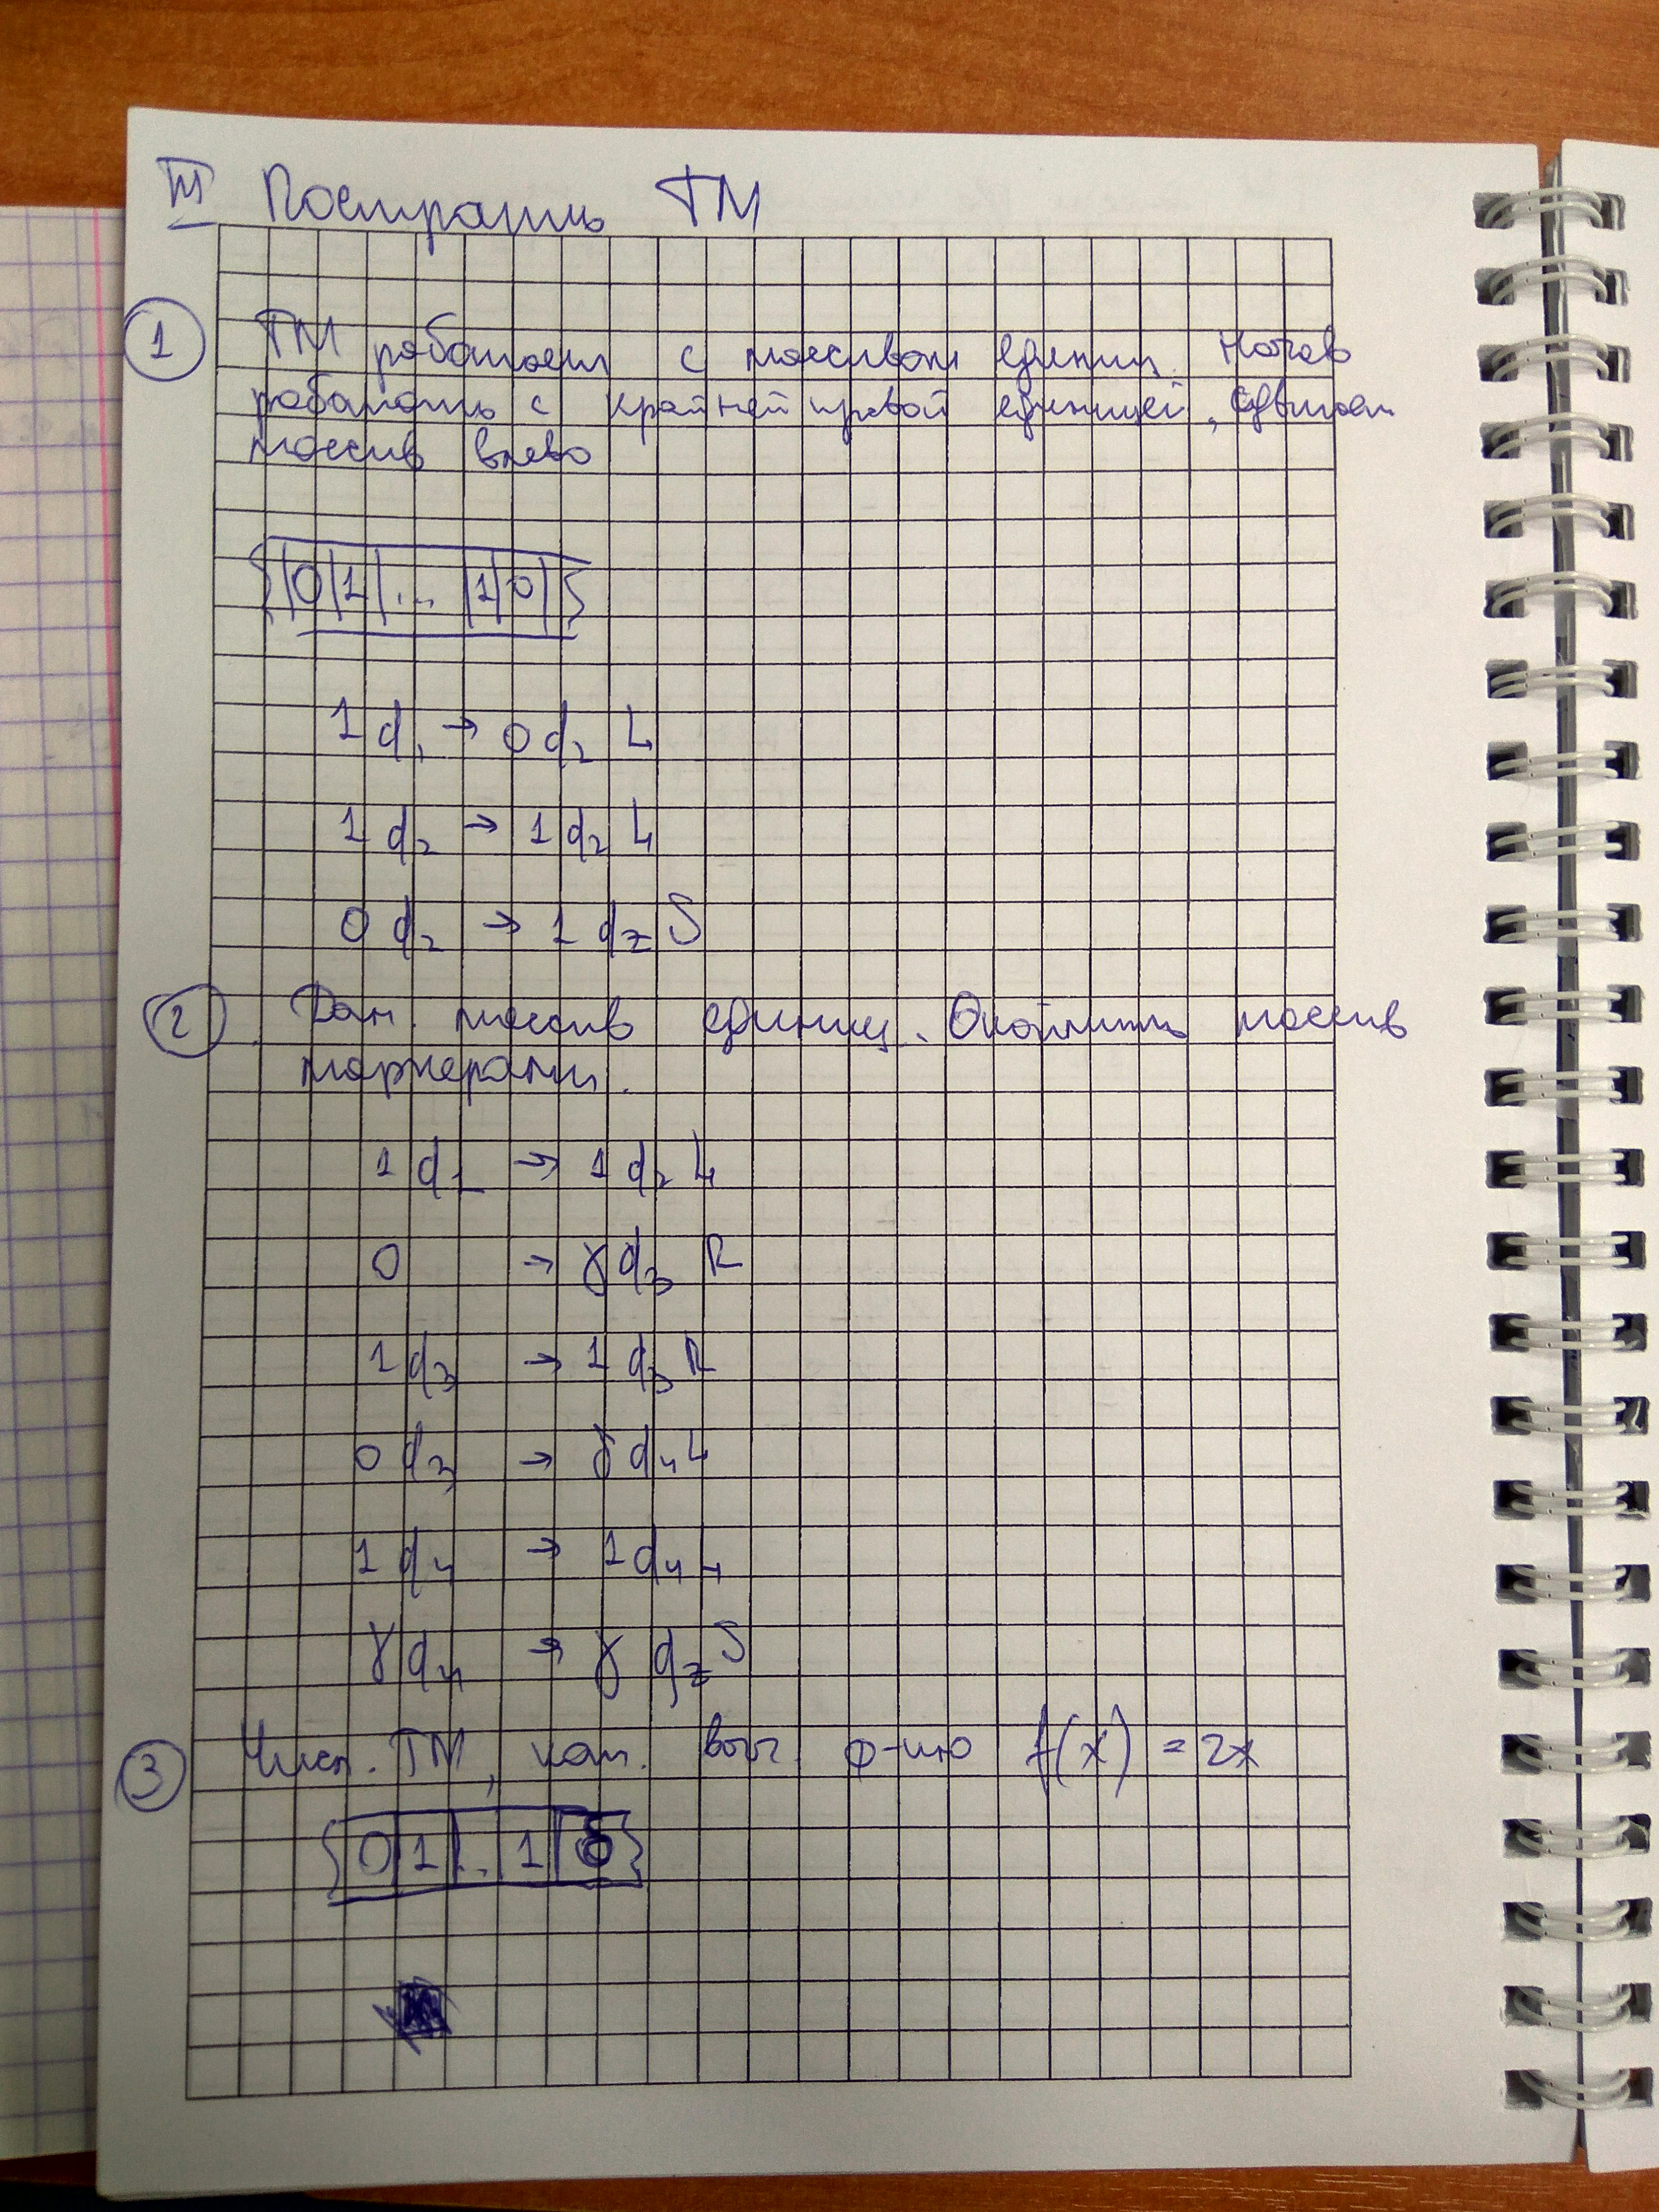 III Построить ТМ
1 ТМ работает с массивом единиц. Начав
работать с крайней правой единицей, сдвигает
массив влево
0 1 ... 1 0
1 q₁ → 0 q₂ L
1 q₂ → 1 q₂ L
0 q₂ → 1 q_z S
2 Дан. массив единиц. Окаймить массив
маркерами.
1 q₁ → 1 q₂ L
0 → γ q₃ R
1 q₃ → 1 q₃ R
0 q₃ → γ q₄ L
1 q₄ → 1 q₄ L
γ q₄ → γ q_z S
3 ТМ, выч. ф-цию f(x) = 2x
0 1 .. 1 0